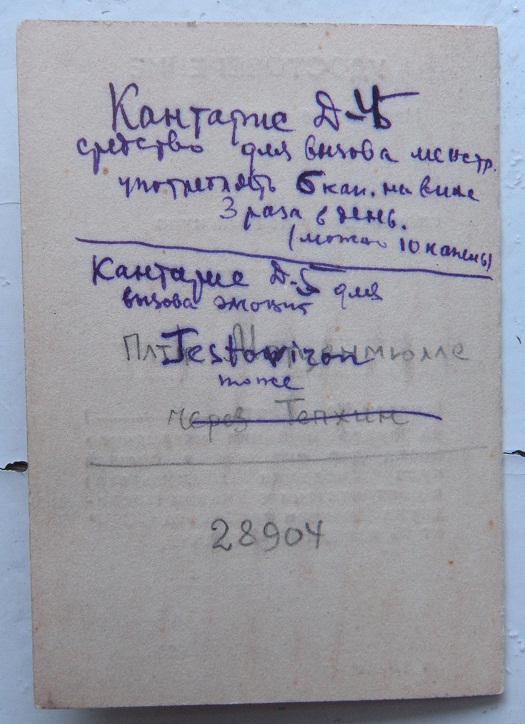 Кантарис Д-4Б
средство для вызова менстр.
употреблять 5 кап. на виле
3 раза в день.
(можно 10 капель)
Кантарис Д-5 для
вызова эмоций
Testoviron
тоже
через Тепхин
28904